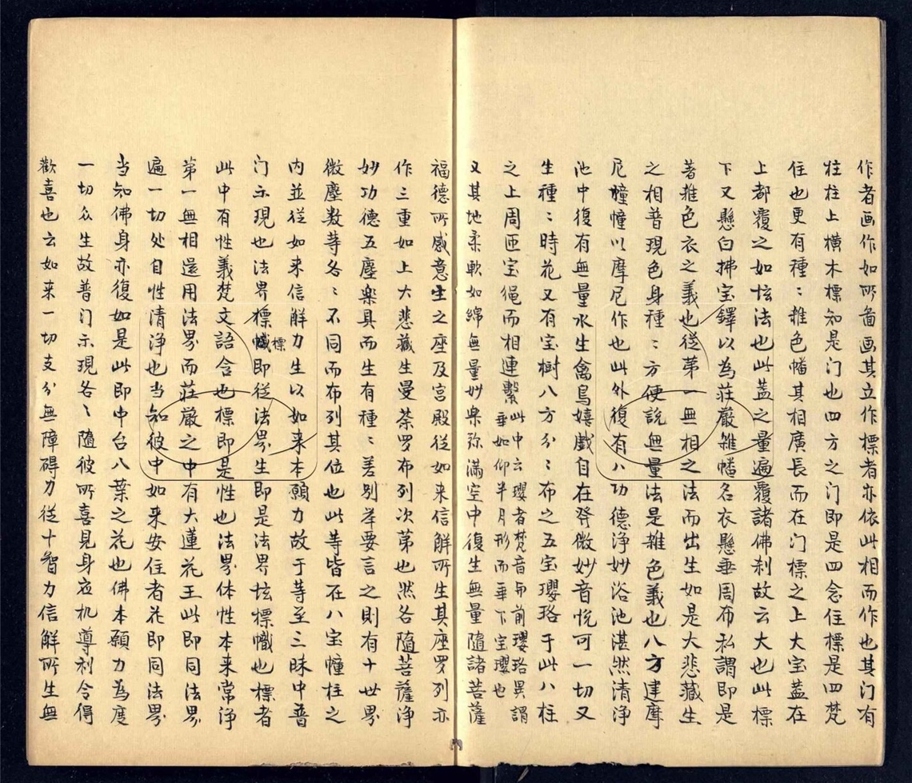 作者画作如所啚画其立作標者亦依此相而作也其门有
柱柱上横木標知是门也四方之门即是四念住標是四梵
住也更有種〻雑色幡其相廣長而在门標之上大宝蓋在
上都覆之如恠法也此蓋之量遍覆諸佛刹故云大也此標
下又懸白拂宝鐸以為莊嚴雜幡名衣懸垂周布私謂即是
著雜色衣之義也從第一無相之法而出生如是大悲藏生
之相普現色身種〻方便說無量法是雜色義也八方建摩
尼幢幢以摩尼作也此外復有八功德淨妙浴池湛然清淨
池中復有無量水生禽鳥嬉戲自在發微妙音悅可一切又
生種〻時花又有宝樹八方分〻布之五宝瓔珞于此八柱
之上周匝宝繩而相連繫此中云瓔者梵音与前瓔珞異謂垂如仰半月形而垂下宝瓔也
又其地柔軟如綿無量妙樂弥滿空中復生無量隨諸菩薩
福德所感意生之座及宮殿從如来信解所生其座罗列亦
作三重如上大悲藏生曼荼罗布列次第也然各隨菩薩净
妙功德五塵樂具而生有種〻差别举要言之則有十世界
微塵数等各〻不同而布列其位也此等皆在八宝幢柱之
内並從如来信解力生以如来本願力故于等至三昧中普
门示現也法界標幟即從法界生即是法界恠標幟也標者
此中有性義梵文語含也標即是性也法界体性本来常淨
第一無相還用法界而莊嚴之中有大蓮花王此即同法界
遍一切处自性清淨也当知彼中如来安住者花即同法界
当知佛身亦復如是此即中台八葉之花也佛本願力為度
一切众生故普门示現各〻隨彼所喜見身应机導利令得
歡喜也云如来一切支分無障碍力從十智力信解所生無